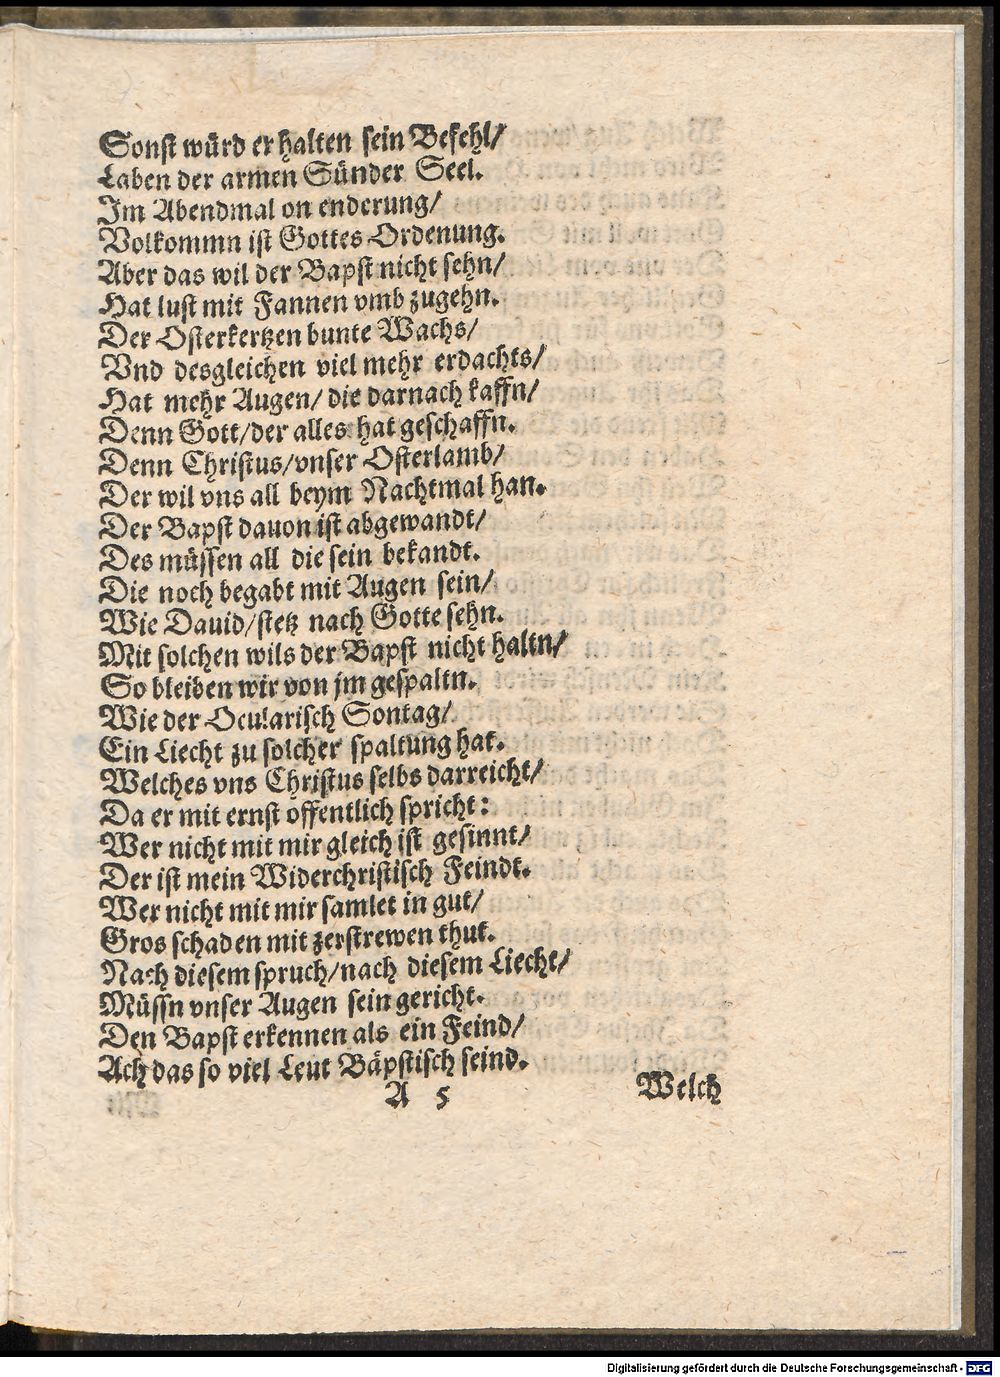 Sonst würd er halten sein Befehl/
Laben der armen Sünder Seel.
Im Abendmal on enderung/
Volkommn ist Gottes Ordenung.
Aber das wil der Bapst nicht sehn/
Hat lust mit Fannen vmb zugehn.
Der Osterkertzen bunte Wachs/
Vnd desgleichen viel mehr erdachts/
Hat mehr Augen/ die darnach kaffn/
Denn Gott/der alles hat geschaffn.
Denn Christus/vnser Osterlamb/
Der wil vns all beym Nachtmal han.
Der Bapst dauon ist abgewandt/
Des müssen all die sein bekandt.
Die noch begabt mit Augen sein/
Wie Dauid/stetz nach Gotte sehn.
Mit solchen wils der Bapst nicht haltn/
So bleiben wir von jm gespaltn.
Wie der Ocularisch Sontag/
Ein Liecht zu solcher spaltung hat.
Welches vns Christus selbs darreicht/
Da er mit ernst offentlich spricht:
Wer nicht mit mir gleich ist gesinnt/
Der ist mein Widerchristisch Feindt.
Wer nicht mit mir samlet in gut/
Gros schaden mit zerstrewen thut.
Nach diesem spruch/nach diesem Liecht/
Müssn vnser Augen sein gericht.
Den Bapst erkennen als ein Feind/
Ach das so viel Leut Bäpstisch seind.
A 5 Welch
Digitalisierung gefördert durch die Deutsche Forschungsgemeinschaft - DFG